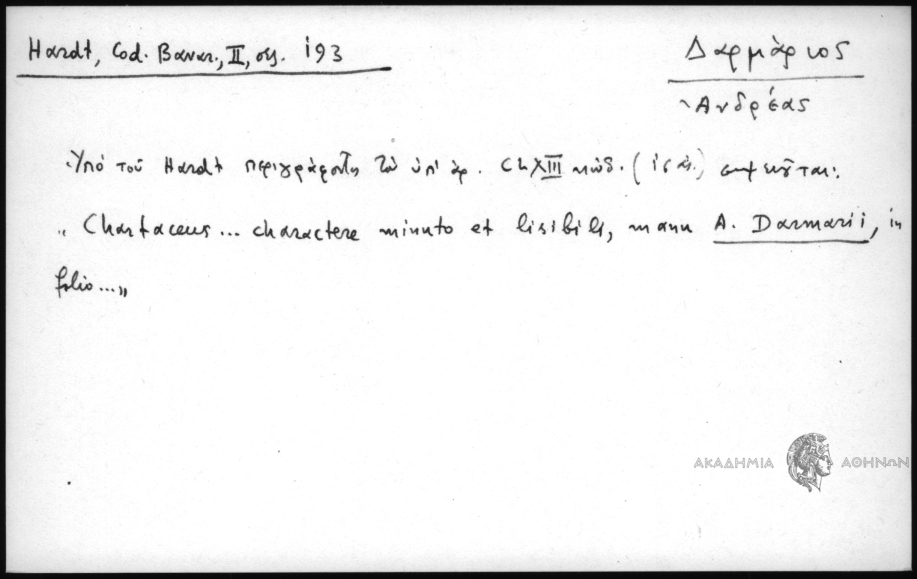 Hardt, Cod. Bavar., II, σς. 193
Δαρμάριος
Ἀνδρέας
Ὑπό τοῦ Hardt περιγράφοντος τὸν ὑπ' ἀρ. CLXIII κώδ. ( ) σημειοῦται:
„ Chartaceus... charactere minuto et lisibili, manu A. Darmarii, in
folio...„
ΑΚΑΔΗΜΙΑ ΑΘΗΝΩΝ